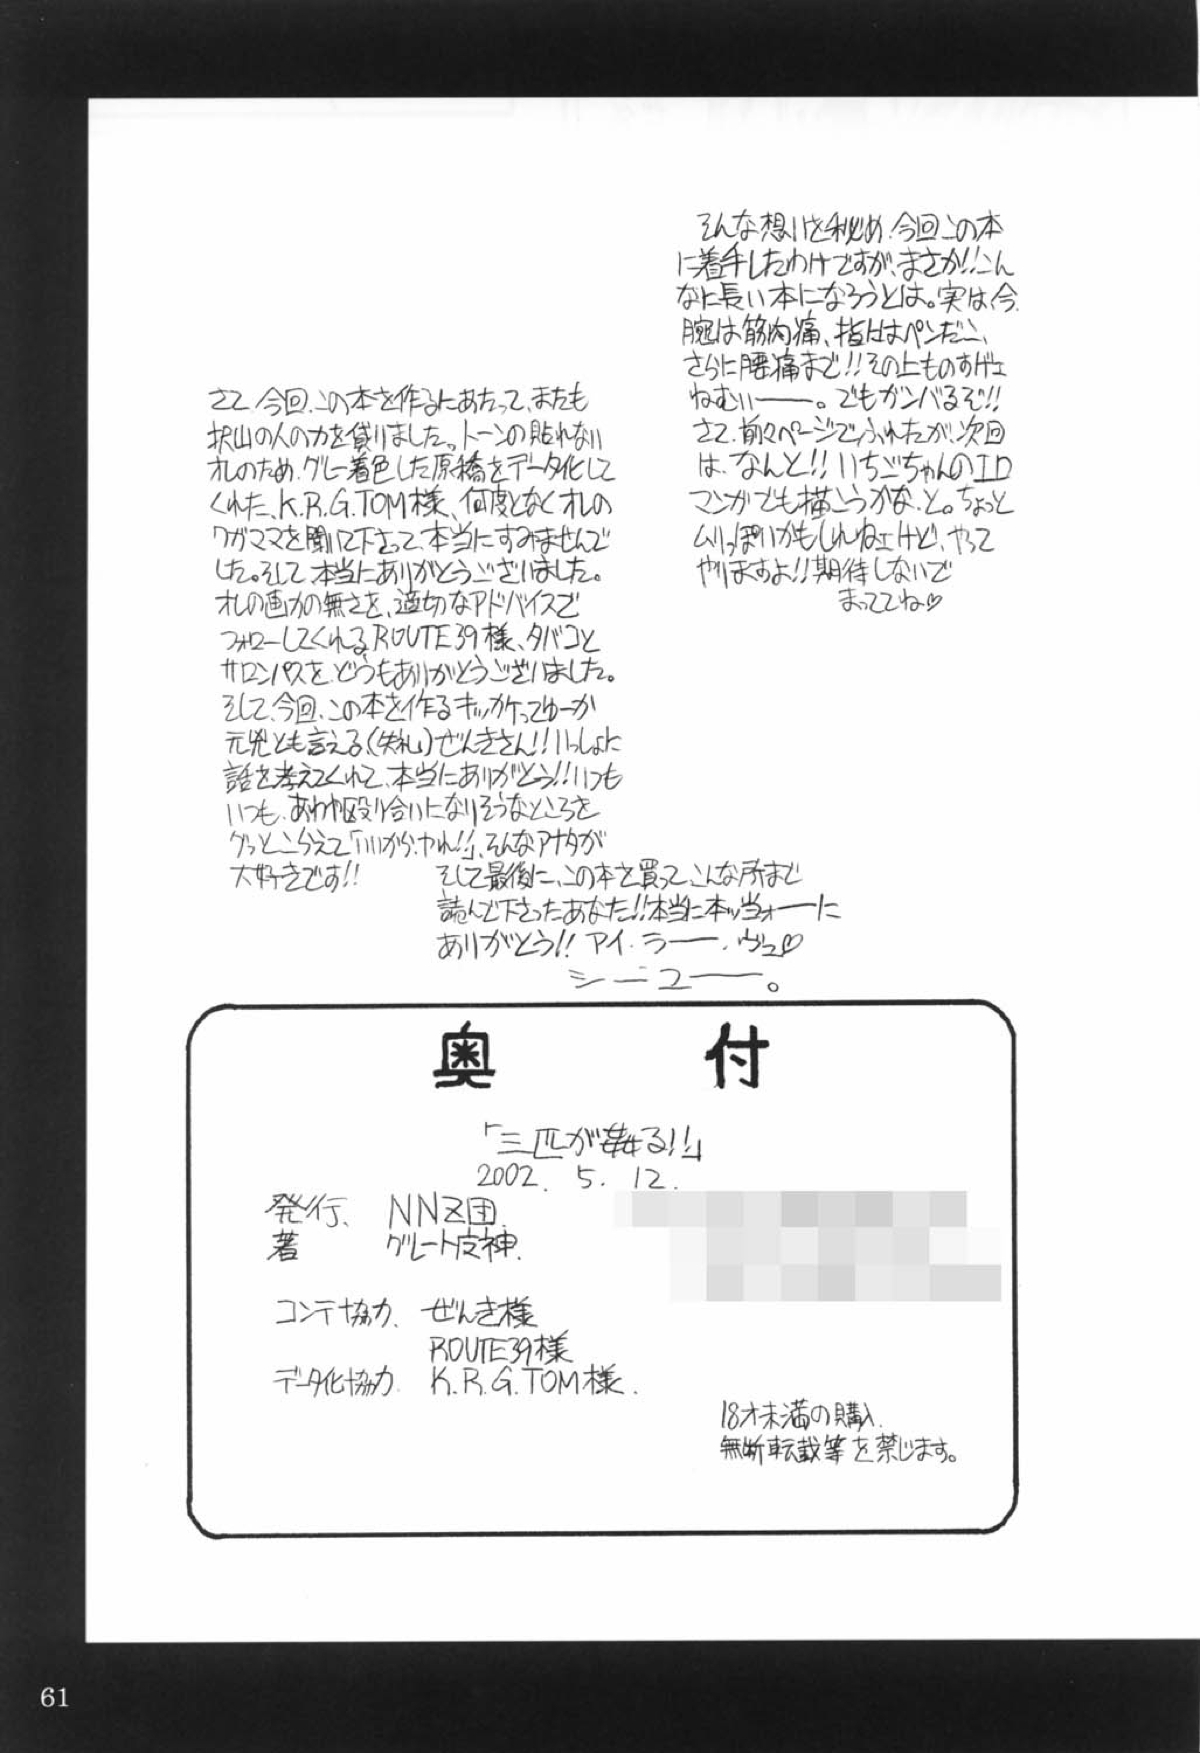 そんな想いを秘め、今回この本
に着手したわけですが、まさか!!こん
なに長い本になろうとは。実は今、
腕は筋肉痛、指にはペンだこ、
さらに腰痛まで!!その上ものすげェ
ねむいーー。でもガンバるぞ!!
さて、前々ページでふれたが、次回
は、なんと!!いちごちゃんのエロ
マンガでも描こうかな、と。ちょっと
ムリっぽいかもしれねェけど、やって
やりますよ!!期待しないで
まっててね♡
さて、今回、この本を作るにあたって、またも
沢山の人の力を借りました。トーンの貼れない
オレのため、グレー着色した原稿をデータ化して
くれた、K.R.G.TOM様、何度となくオレの
ワガママを聞いて下さって、本当にすみませんで
した。そして、本当にありがとうございました。
オレの画力の無さを、適切なアドバイスで
フォローしてくれるROUTE39様、タバコと
サロンパスを、どうもありがとうございました。
そして、今回、この本を作るキッカケってゆーか
元兇とも言える、(失礼)ぜんきさん!!いっしょに
話を考えてくれて、本当にありがとう!!いつも
いつも、あわや殴り合いになりそうなところを
グッとこらえて「いいから、ヤれ!!」、そんなアナタが
大好きです!!
そして最後に、この本を買って、こんな所まで
読んで下さったあなた!!本当に本ッ当ォーーに
ありがとう!! アイ・ラーー・ヴュ♡
シーユーー。
奥付
「三匹が姦る!!」
2002. 5. 12.
発行、 NNZ団.
著 グレート皮神.
コンテ協力、ぜんき様
ROUTE39様
データ化協力 K.R.G.TOM様.
18才未満の購入、
無断転載等を禁じます。
61